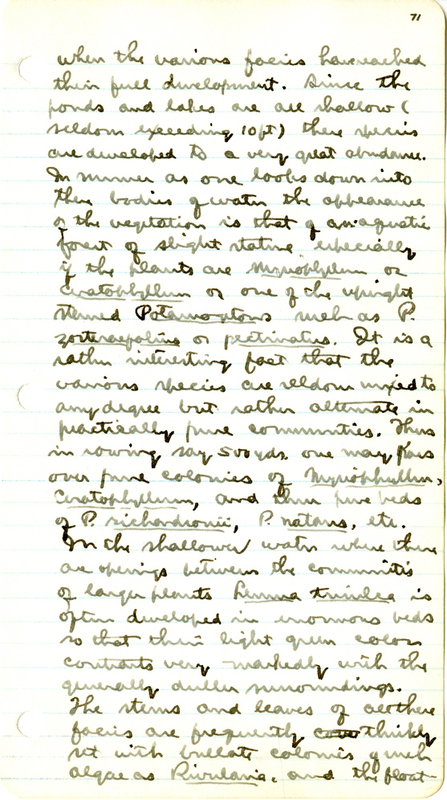 71
when the various facies have reached
their full development. Since the
ponds and lakes are all shallow (
seldom exceeding 10 ft) these species
are developed to a very great abundance.
In summer as one looks down into
these bodies of water the appearance
of the vegetation is that of an aquatic
forest of slight stature especially
if the plants are Myriophyllum or
Ceratophyllum or one of the upright
stemed Potamogetons such as P.
zosteraefolius or pectinatus. It is a
rather interesting fact that the
various species are seldom mixed to
any degree but rather alternate in
practically pure communities. Thus
in rowing say 500 yds. one may pass
over pure colonies of Myriophyllum,
Ceratophyllum, and then pure beds
of P. richardsonii, P. natans, etc.
In the shallower water where there
are openings between the communities
of larger plants Lemna trisulca is
often developed in enormous beds
so that their light green color
contrasts very markedly with the
generally duller surroundings.
The stems and leaves of all these
facies are frequently thickly
set with bullate colonies of such
algae as Rivularia. and the float-